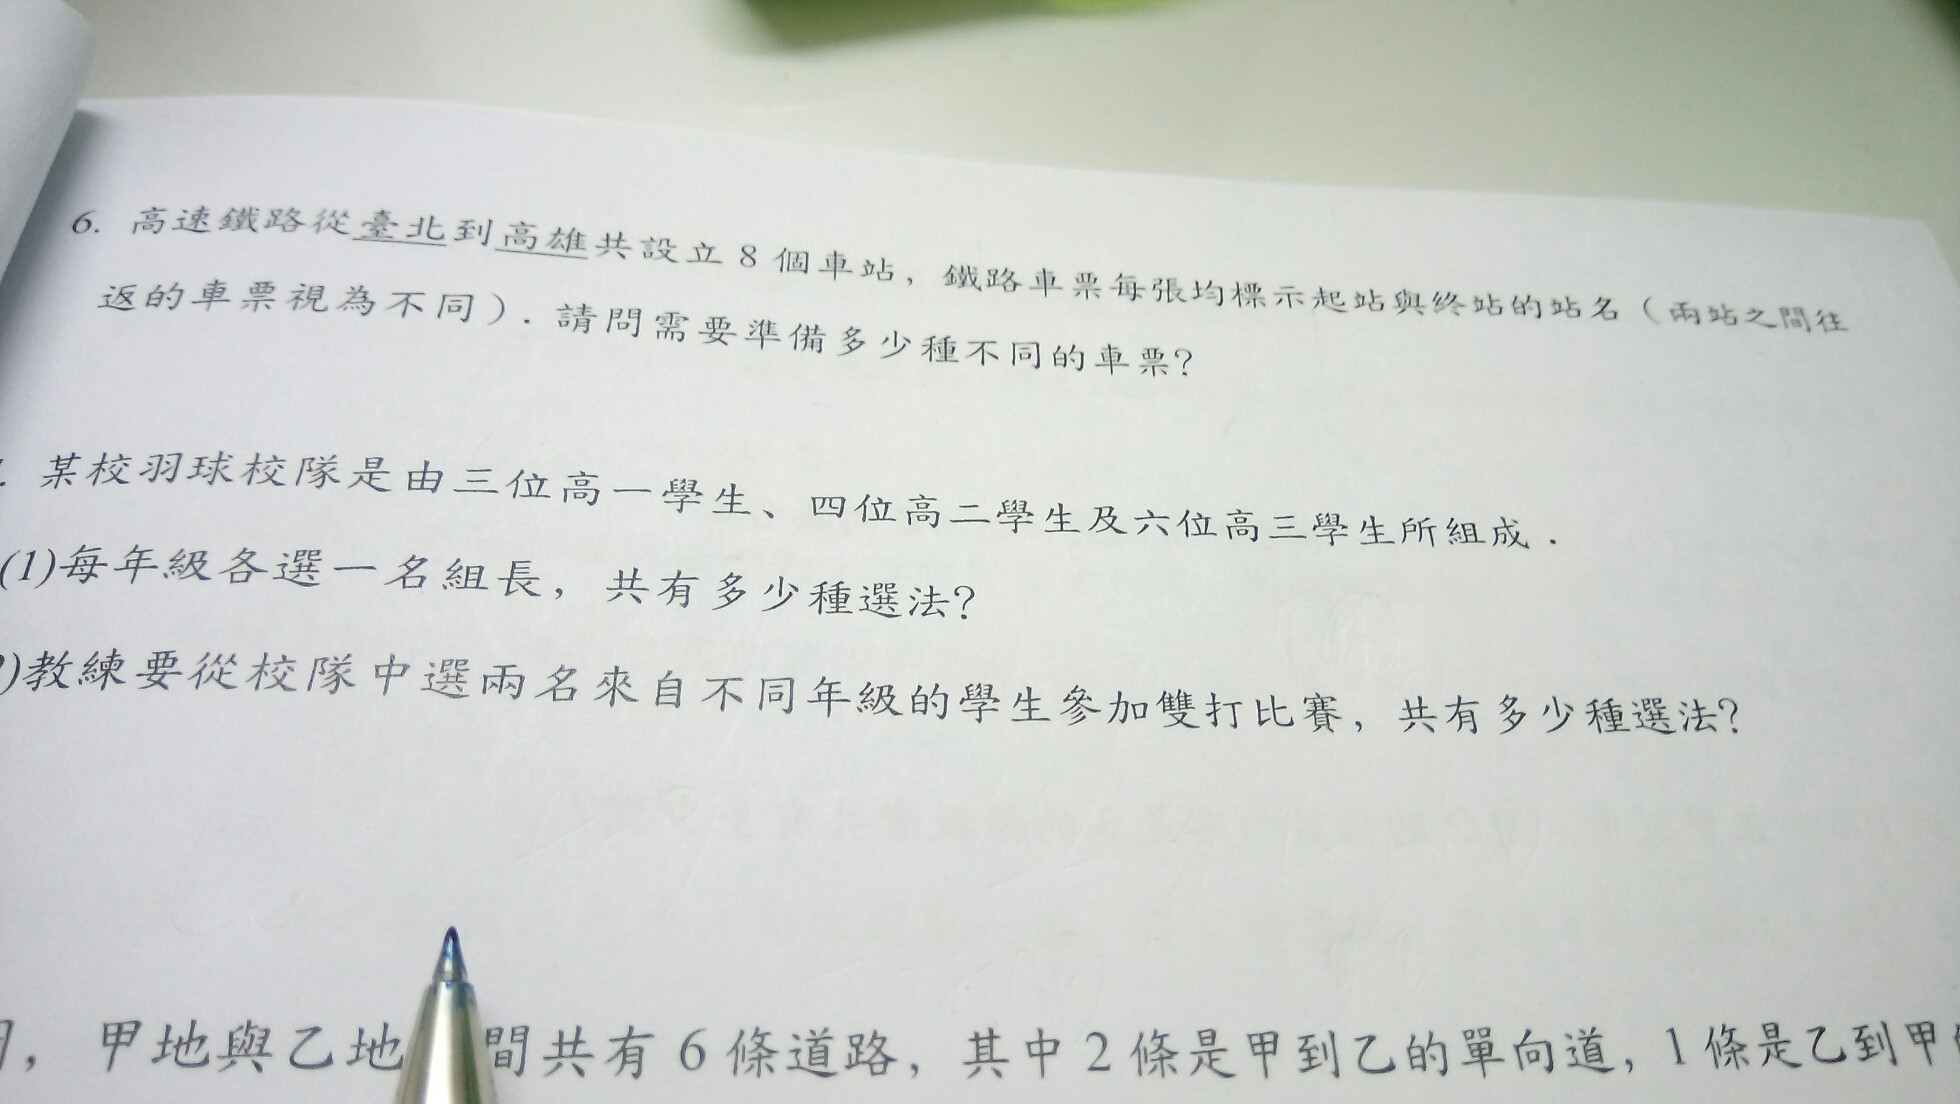 6. 高速鐵路從臺北到高雄共設立 8 個車站，鐵路車票每張均標示起站與終站的站名（兩站之間往
返的車票視為不同）．請問需要準備多少種不同的車票?
. 某校羽球校隊是由三位高一學生、四位高二學生及六位高三學生所組成．
(1)每年級各選一名組長，共有多少種選法?
)教練要從校隊中選兩名來自不同年級的學生參加雙打比賽，共有多少種選法?
，甲地與乙地 間共有 6 條道路，其中 2 條是甲到乙的單向道，1 條是乙到甲